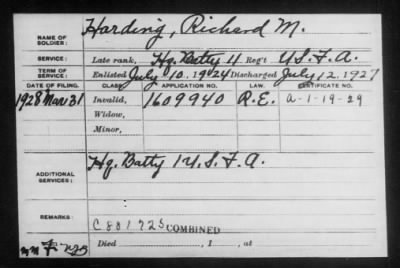 NAME OF SOLDIER: Harding, Richard M.
SERVICE: Late rank, Hq. Batty 4 Reg't U.S.F.A.
TERM OF SERVICE: Enlisted July 10, 1924 Discharged July 12, 1927
DATE OF FILING. CLASS. APPLICATION NO. LAW. CERTIFICATE NO.
1928 Mar 31 Invalid, 1609940 R.E. A-1-19-29
Widow,
Minor,
ADDITIONAL SERVICES: Hq. Batty 1 U.S.F.A.
REMARKS: C 801725 COMBINED
Died , 1 , at